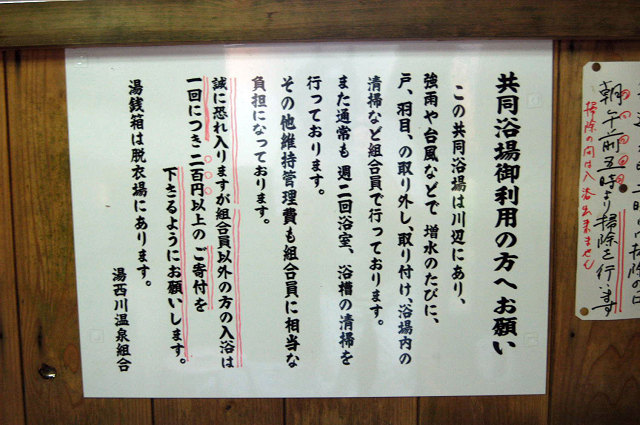 共同浴場御利用の方へお願い
この共同浴場は川辺にあり、
強雨や台風などで 増水のたびに、
戸、羽目、の取り外し、取り付け、浴場内の
清掃など組合員で行っております。
また通常も 週二回浴室、浴槽の清掃を
行っております。
その他維持管理費も組合員に相当な
負担になっております。
誠に恐れ入りますが組合員以外の方の入浴は
一回につき二百円以上の ご寄付を
下さるようにお願いします。
湯銭箱は脱衣場にあります。
湯西川温泉組合
掃除の日
朝午前五時より掃除を行います
掃除の間は入浴出来ません